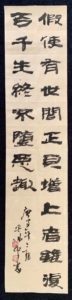 假使有世間正見增上者雖復
百千生終不墮惡趣